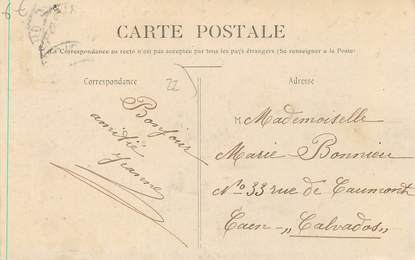 CARTE POSTALE
La Correspondance au recto n'est pas acceptée par tous les pays étrangers (Se renseigner a la Poste)
Correspondance
Adresse
22
Bonjour
amitié
Jeanne
M
Mademoiselle
Marie Bonnieu
No 33 rue de Caumont
Caen - "Calvados"